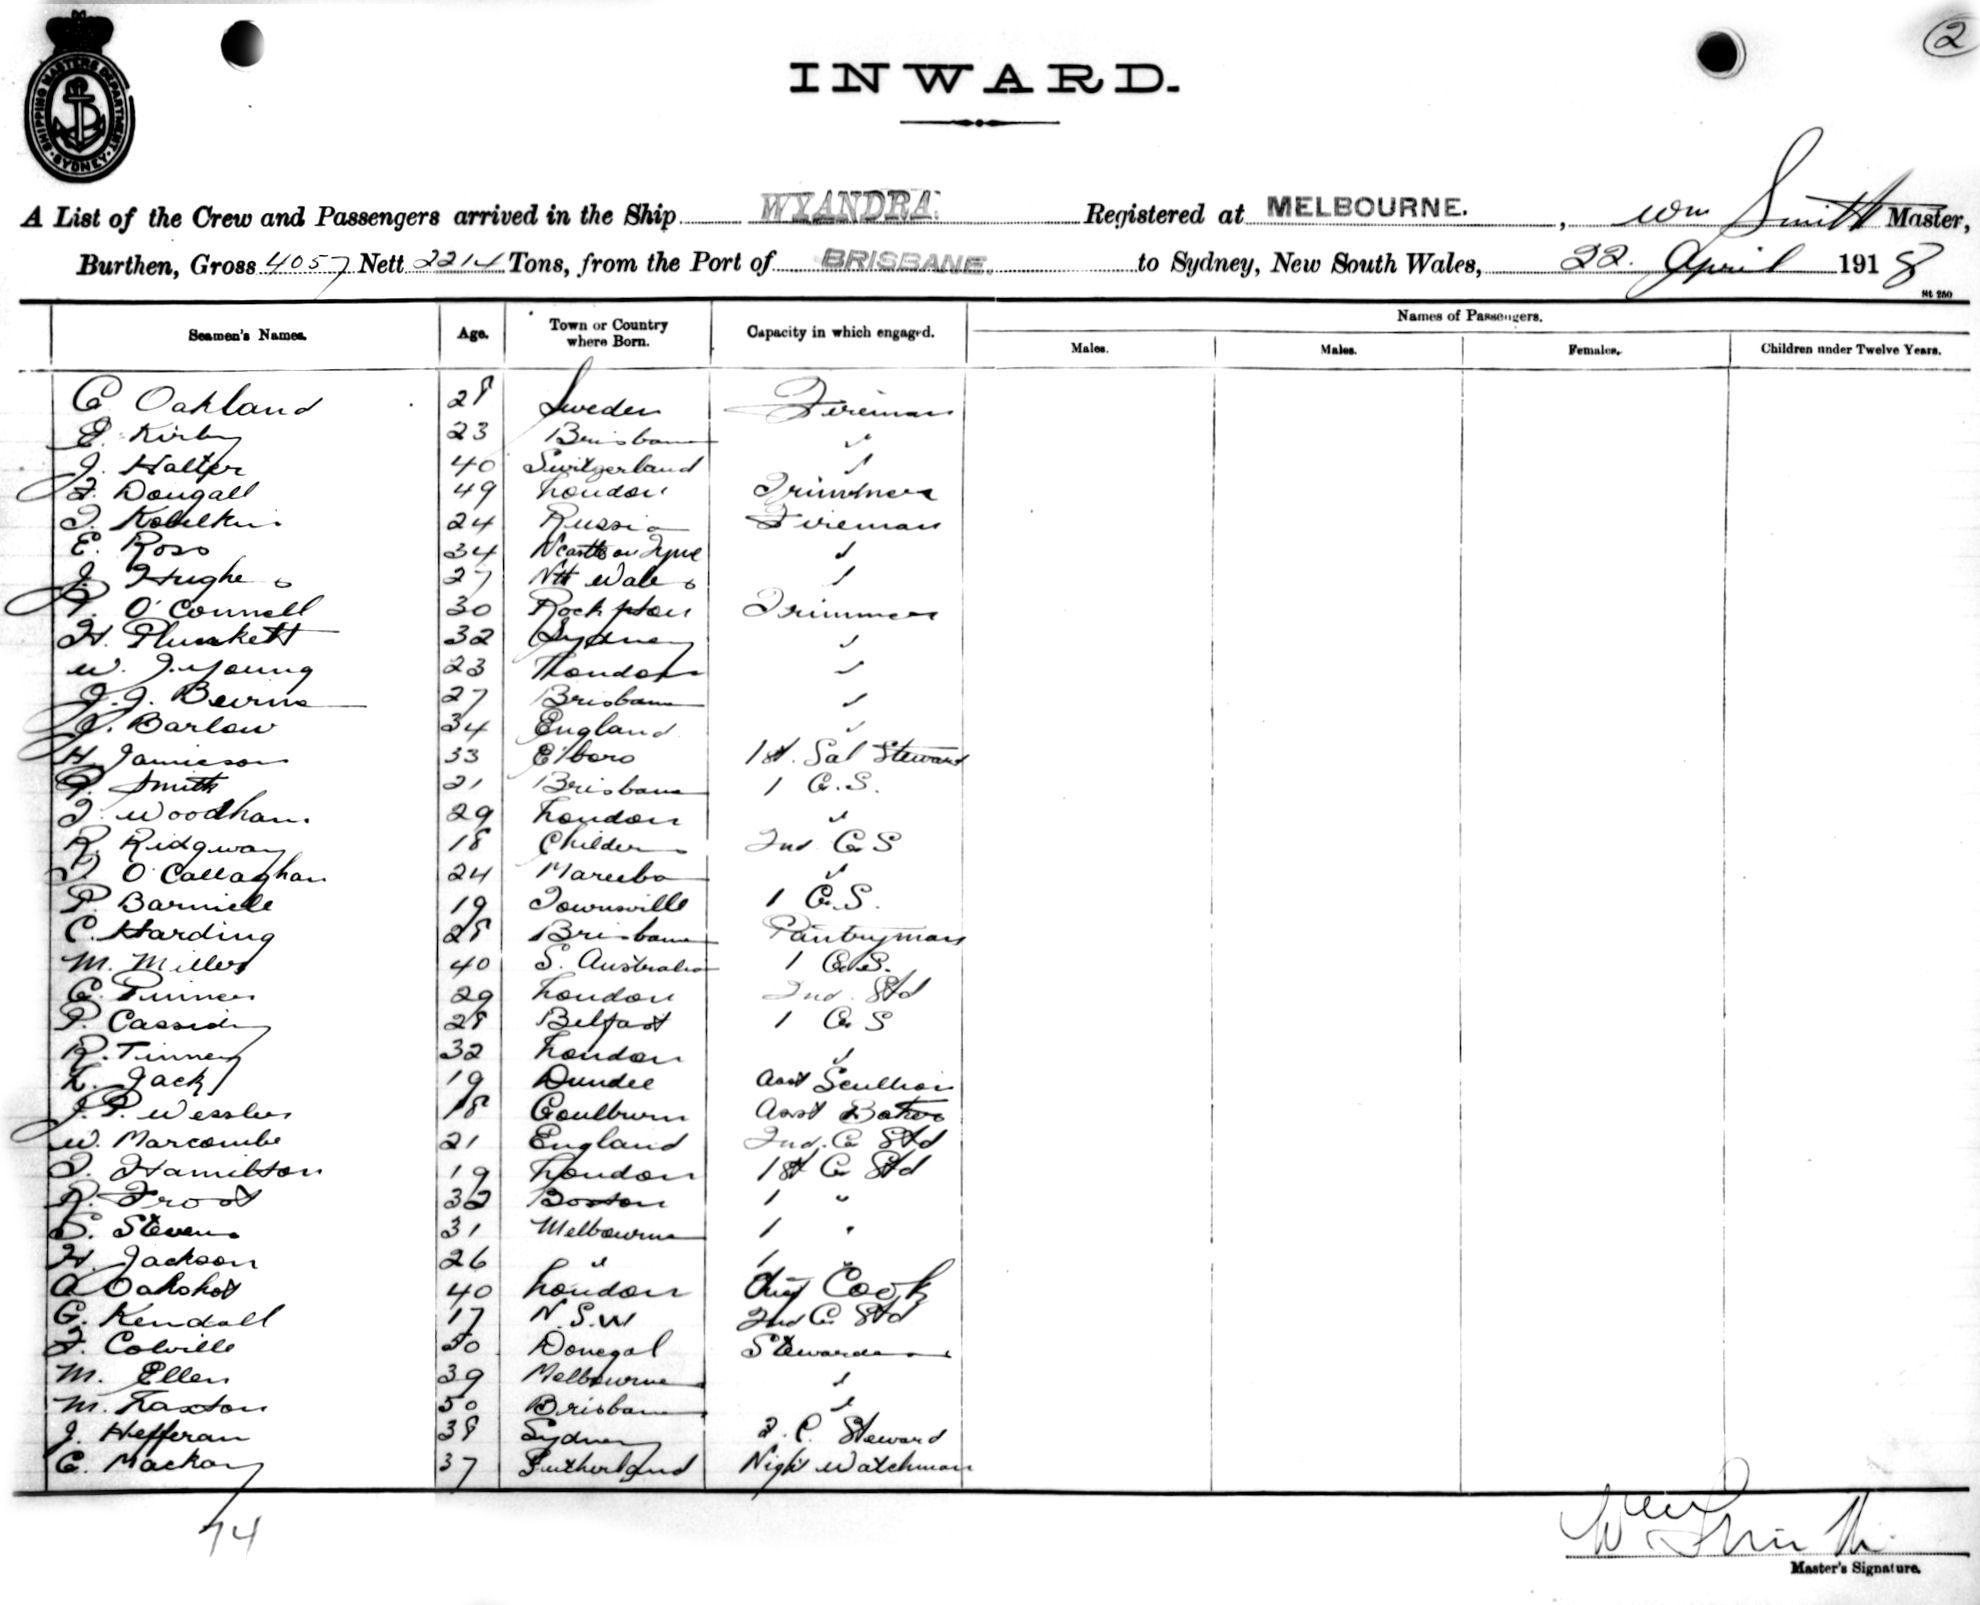 2
SHIPPING MASTERS DEPARTMENT SYDNEY
INWARD.
A List of the Crew and Passengers arrived in the Ship WYANDRA. Registered at MELBOURNE., Wm Smith Master,
Burthen, Gross 4057 Nett 2214 Tons, from the Port of BRISBANE. to Sydney, New South Wales, 22. April 1918
St 250
Seamen's Names. Age. Town or Country where Born. Capacity in which engaged. Names of Passengers.
Males. Males. Females. Children under Twelve Years.
C Oakland 28 Sweden Fireman
E. Kirby 23 Brisbane "
J. Halter 40 Switzerland "
F. Dougall 49 London Trimmers
24 Russia Fireman
E. Ross 34 Ncastle on Tyne "
J. Hughes 27 Nth Wales "
P. O'Connell 30 Rockhpton Trimmers
H. Plunkett 32 Sydney "
W. J. Young 23 London "
J. J. Beirne 27 Brisbane "
J. Barlow 34 England "
H. Jamieson 33 E'boro 1st. Sal Steward
P. Smith 21 Brisbane 1 C.S.
F. Woodham 29 London "
R. Ridgway 18 Childers 2nd C S
T. O'Callaghan 24 Mareeba "
P. 19 Townsville 1 C.S.
C. Harding 28 Brisbane Pantryman
M. Miller 40 S. Australia 1 C.S.
C. 29 London 2nd. Std
P. Cassidy 28 Belfast 1 C S
R. Tinney 32 London "
L. Jack 19 Dundee Asst Scullion
J. P. Wessler 18 Goulburn Asst Baker
W. Marcombe 21 England 2nd. C Std
T. Hamilton 19 London 1st C Std
R. Frost 32 Boston 1 "
S. Stevens 31 Melbourne 1 "
H. Jackson 26 " 1 "
A Oakshot 40 London Chief Cook
G. Kendall 17 N.S.W 2nd C Std
F. Colville 50 Donegal Stewardess
M. Ellen 39 Melbourne "
M. Laxton 50 Brisbane "
J. Hefferan 38 Sydney 2. C. Steward
C. Mackay 37 Sutherland Night Watchman
74
Wm Smith
Master's Signature.